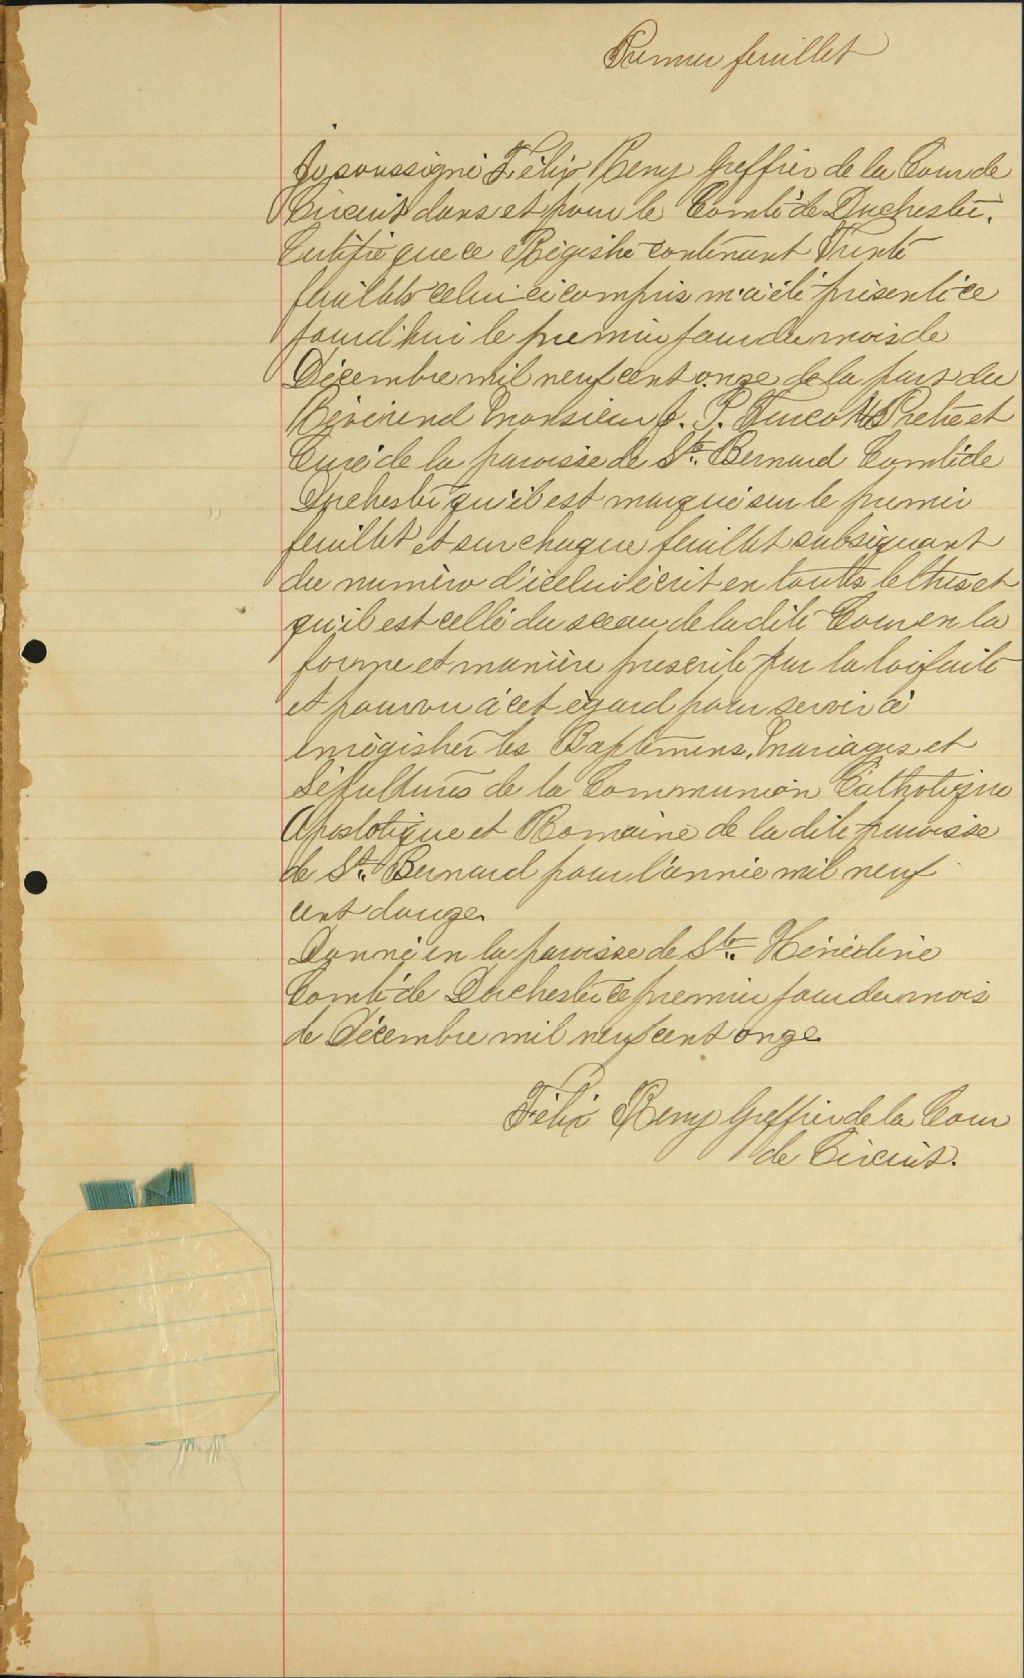 Premier feuillet
Je soussigné Félix Remy Greffier de la Cour de
Circuit dans et pour le Comté de Dorchester.
Certifie que ce Régistre contenant Trente
feuillets celui-ci compris m'a été présenté ce
jourd'hui le premier jour du mois de
Décembre mil neuf cent onze de la part du
Révérend Monsieur J. P. Turcotte Prêtre et
Curé de la paroisse de St. Bernard Comté de
Dorchester qu'il est marqué sur le premier
feuillet et sur chaque feuillet subséquant
du numéro d'icelui écrit en toutes lettres et
qu'il est cellé du sceau de la dite Cour en la
forme et manière prescrite par la loi faite
et pourvu à cet égard pour servir à
enrégistrer les Baptêmens, Mariages et
Sépultures de la Communion Catholique
Apostolique et Romaine de la dite paroisse
de St. Bernard pour l'année mil neuf
cent douze.
Donné en la paroisse de Ste. Hénédine
Comté de Dorchester ce premier jour du mois
de Décembre mil neuf cent onze
Félix Remy Greffier de la Cour
de Circuit.